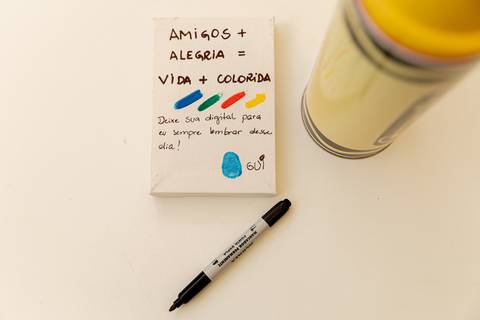 AMIGOS +
ALEGRIA =
VIDA + COLORIDA
Deixe sua digital para
eu sempre lembrar desse
dia!
GUI